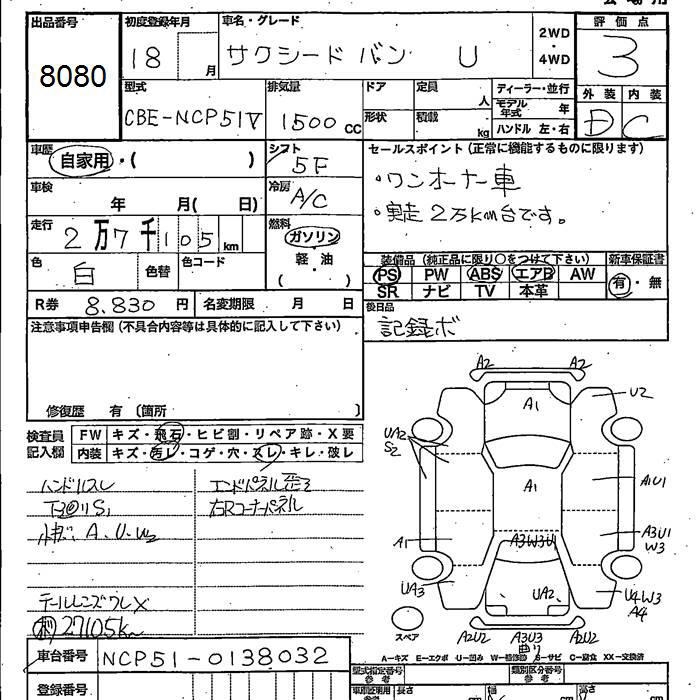 出品番号
8080
初度登録年月
18 月
車名・グレード
サクシード バン U
2WD
・
4WD
評価点
3
外装 内装
D C
型式
CBE-NCP51V
排気量
1500 cc
ドア
形状
定員 人
積載 kg
ディーラー・並行
モデル年式 年
ハンドル 左・右
車歴
自家用・( )
シフト
5F
車検
年 月( 日)
冷房
A/C
走行
2万7千105 km
燃料
ガソリン
軽・油
( )
色
白
色替
色コード
R券 8.830 円
名変期限 月 日
セールスポイント(正常に機能するものに限ります)
・ワンオーナー車
・実走2万km台です。
装備品(純正品に限り○をつけて下さい)
PS PW ABS エアB AW
SR ナビ TV 本革
新車保証書
有・無
後日品
記録ボ
注意事項申告欄(不具合内容等は具体的に記入して下さい)
修復歴 有〔箇所 〕
検査員
記入欄
FW キズ・飛石・ヒビ割・リペア跡・X要
内装 キズ・汚レ・コゲ・穴・スレ・キレ・破レ
ハンドルスレ
エンドパネル歪ミ
右Rコーナーパネル
A.U.W2
テールレンズワレX
27105k
A2 A2
A1
U2
UA2
S2
A1
A1U1
A1
A3W3U1
A3U1
W3
UA3
UA2
U4W3
A4
スペア
A2U2 A3U3 A2U2
曲り
A-キズ E-エクボ U-凹み W-補修跡 S-サビ C-腐食 XX-交換済
車台番号 NCP51-0138032
登録番号
型式指定番号
参考
類別区分番号
参考
長さ
幅
高さ